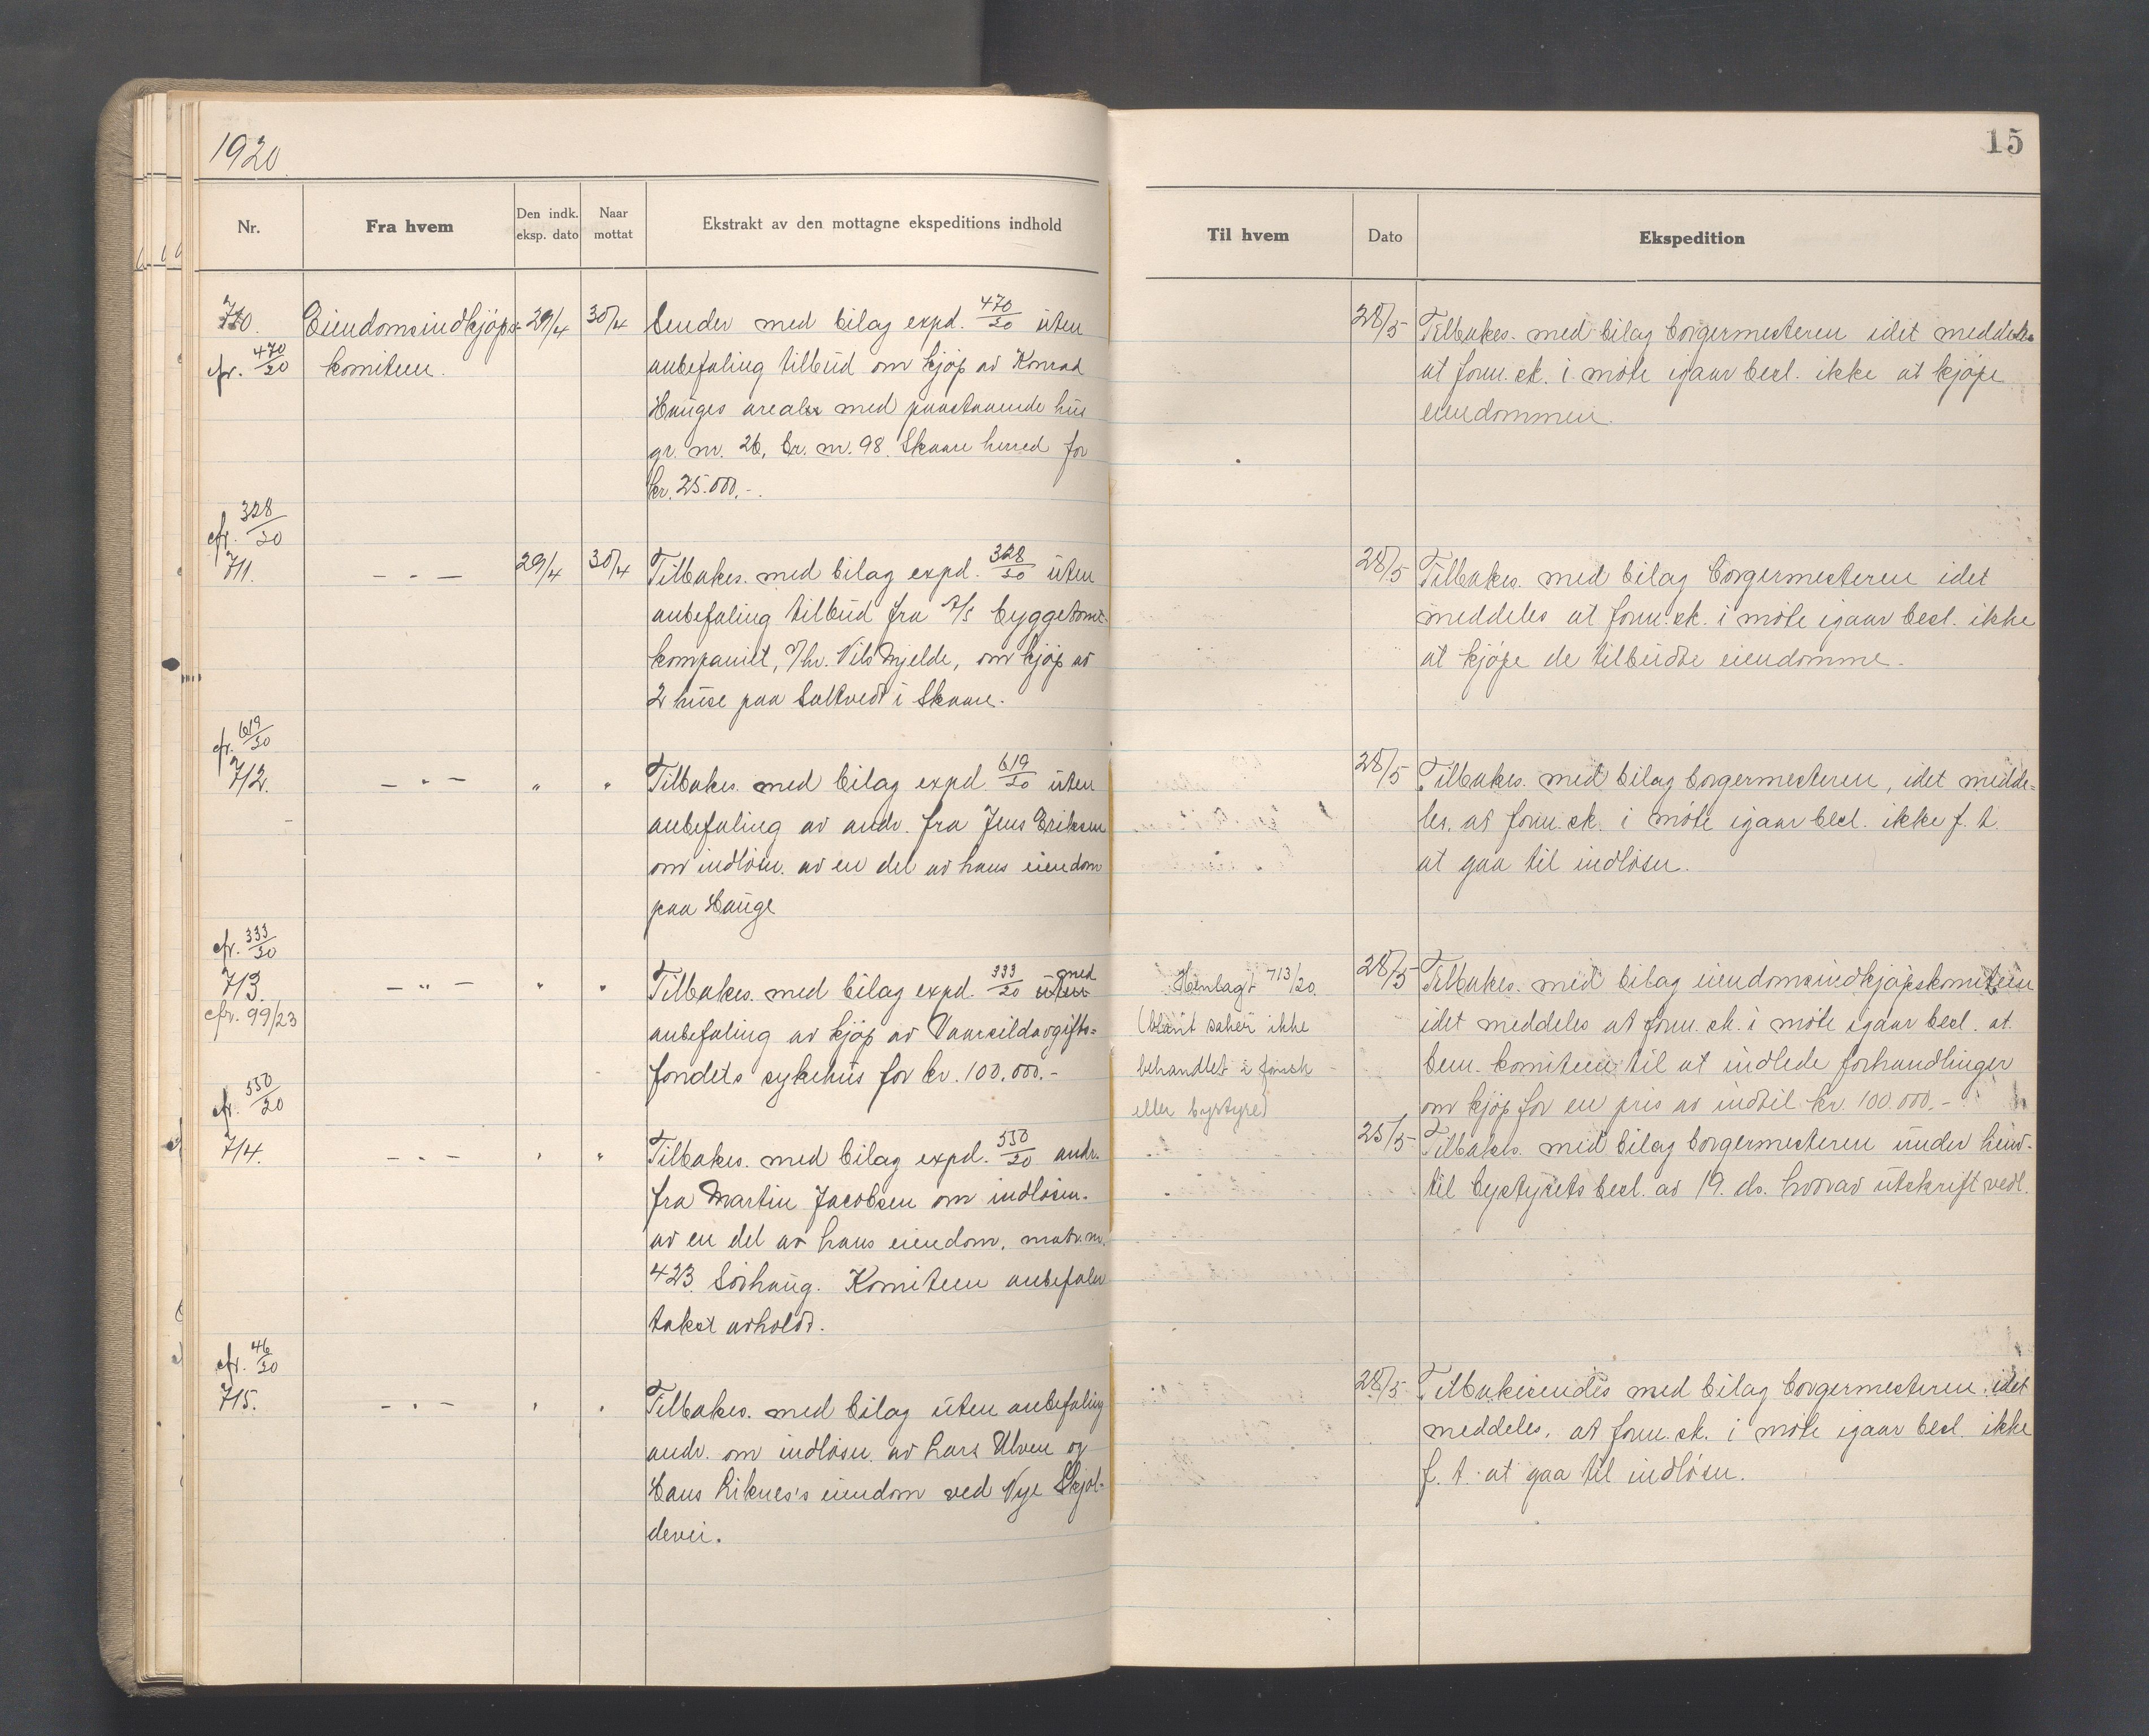 1920.
15
Nr.
Fra hvem
Den indk. eksp. dato
Naar mottat
Ekstrakt av den mottagne ekspeditions indhold
Til hvem
Dato
Ekspedition
710.
cfr. 470/20
Eiendomsindkjøps-
komiteen.
29/4
30/4
Sender med bilag expd. 470/20 uten
anbefaling tilbud om kjøp av Konrad
Hauges arealer med paastaaende hus
gr. nr. 26, br. nr. 98. Skaare herred for
kr. 25.000.-.
28/5
Tilbakes. med bilag borgermesteren idet meddeles
at form.sk. i møte igaar besl. ikke at kjøpe
eiendommen.
cfr. 328/20
711.
- " -
29/4
30/4
Tilbakes. med bilag expd. 328/20 uten
anbefaling tilbud fra A/S byggetomt-
kompaniet, v/hr. Nils Mjelde, om kjøp av
2 huse paa Saltvedt i Skaare.
28/5
Tilbakes. med bilag borgermesteren idet
meddeles at form.sk. i møte igaar besl. ikke
at kjøpe de tilbudte eiendomme.
cfr. 619/20
712.
- " -
"
"
Tilbakes. med bilag expd. 619/20 uten
anbefaling av andr. fra Jens Eriksen
om indløsn. av en del av hans eiendom
paa Hauge
28/5
Tilbakes. med bilag borgermesteren, idet medde=
les, at form.sk. i møte igaar besl. ikke f. t.
at gaa til indløsn.
cfr. 333/20
713.
cfr. 99/23
- " -
"
"
Tilbakes. med bilag expd. 333/20 uten med
anbefaling av kjøp av Vaarsildavgifts=
fondets sykehus for kr. 100.000.-
Henlagt 713/20.
(blant saker ikke
behandlet i formsk
eller bystyre)
28/5
Tilbakes. med bilag eiendomsindkjøpskomiteen
idet meddeles at form.sk. i møte igaar besl. at
bem. komiteen til at indlede forhandlinger
om kjøp for en pris av indtil kr. 100.000.-
cfr. 550/20
714.
- " -
"
"
Tilbakes. med bilag expd. 550/20 andr.
fra Martin Jacobsen om indløsn.
av en del av hans eiendom, matr. nr.
423 Sørhaug. Komiteen anbefaler
takst avholdt.
25/5
Tilbakes. med bilag borgermesteren under henv.
til bystyrets besl. av 19. ds. hvorav utskrift vedl.
cfr. 46/20
715.
- " -
"
"
Tilbakes. med bilag uten anbefaling
andr. om indløsn. av Lars Ulven og
Hans Liknes's eiendom ved Nye Skjol-
devei.
28/5
Tilbakesendes med bilag borgermesteren, idet
meddeles, at form.sk. i møte igaar besl. ikke
f. t. at gaa til indløsn.